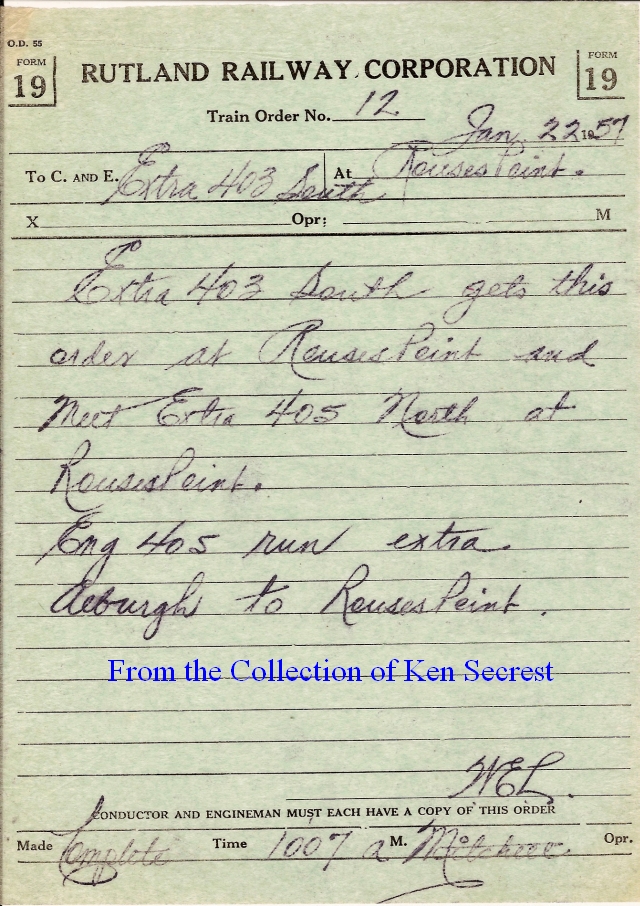 O.D. 55
FORM 19 RUTLAND RAILWAY CORPORATION FORM 19
Train Order No. 12
Jan 22 1957
To C. AND E. Extra 403 South At Rouses Point.
X Opr: M
Extra 403 South gets this
order at Rouses Point and
Meet Extra 405 North at
Rouses Point.
Eng 405 run extra
Alburgh to Rouses Point.
From the Collection of Ken Secrest
WEL.
CONDUCTOR AND ENGINEMAN MUST EACH HAVE A COPY OF THIS ORDER
Made Complete Time 1007 a M. Opr.